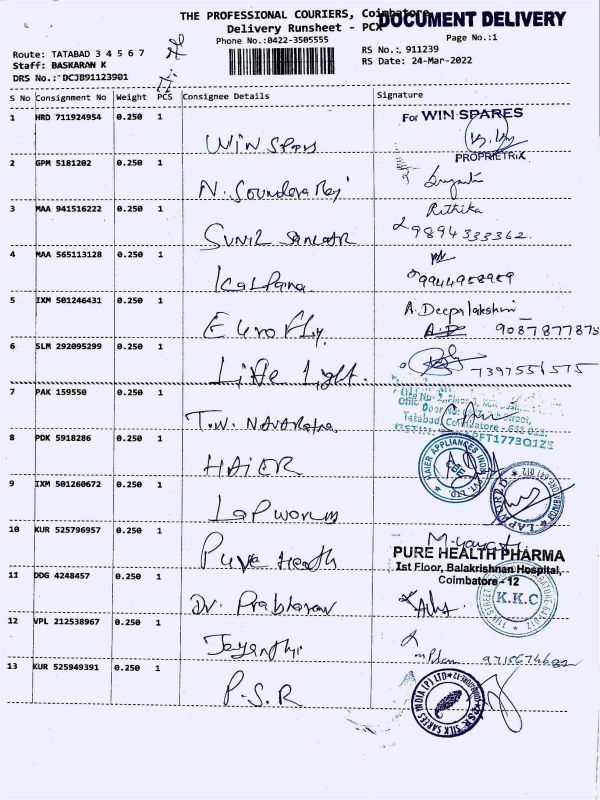 THE PROFESSIONAL COURIERS, Coimbatore
DOCUMENT DELIVERY
Delivery Runsheet - PCX
Phone No.:0422-3505555
Page No.:1
Route: TATABAD 3 4 5 6 7
RS No.:, 911239
Staff: BASKARAN K
RS Date: 24-Mar-2022
DRS No.: DCJB91123901
S No Consignment No Weight PCS Consignee Details Signature
1 HRD 711924954 0.250 1 WIN SPARS
For WIN SPARES
PROPRIETRIX
2 GPM 5181202 0.250 1 N. Soundera Raj
3 MAA 941516222 0.250 1 SUNIL SANCAR Rithika
9894333362
4 MAA 565113128 0.250 1 Kalpana
9944958959
5 IXM 501246431 0.250 1 Euro Fly A. Deepalakshmi
9087877875
6 SLM 292095299 0.250 1 Life Light.
7397556575
7 PAK 159550 0.250 1 T.N. Navaratna
Door
Street,
Tatabad, Coimbatore - 641 012.
8 PDK 5918286 0.250 1 HAIER
HAIER APPLIANCES INDIA PVT. LTD.
CBE
9 IXM 501260672 0.250 1 Lap World
LAPWORLD
10 KUR 525796957 0.250 1 Pure Health
PURE HEALTH PHARMA
1st Floor, Balakrishnan Hospital,
Coimbatore - 12
11 DDG 4248457 0.250 1 Dr. Prabhakaran
K.K.C
12 VPL 212538967 0.250 1 Jeyanthi
9715674682
13 KUR 525949391 0.250 1 P.S.R
P.S.R. SILK SAREES INDIA (P) LTD